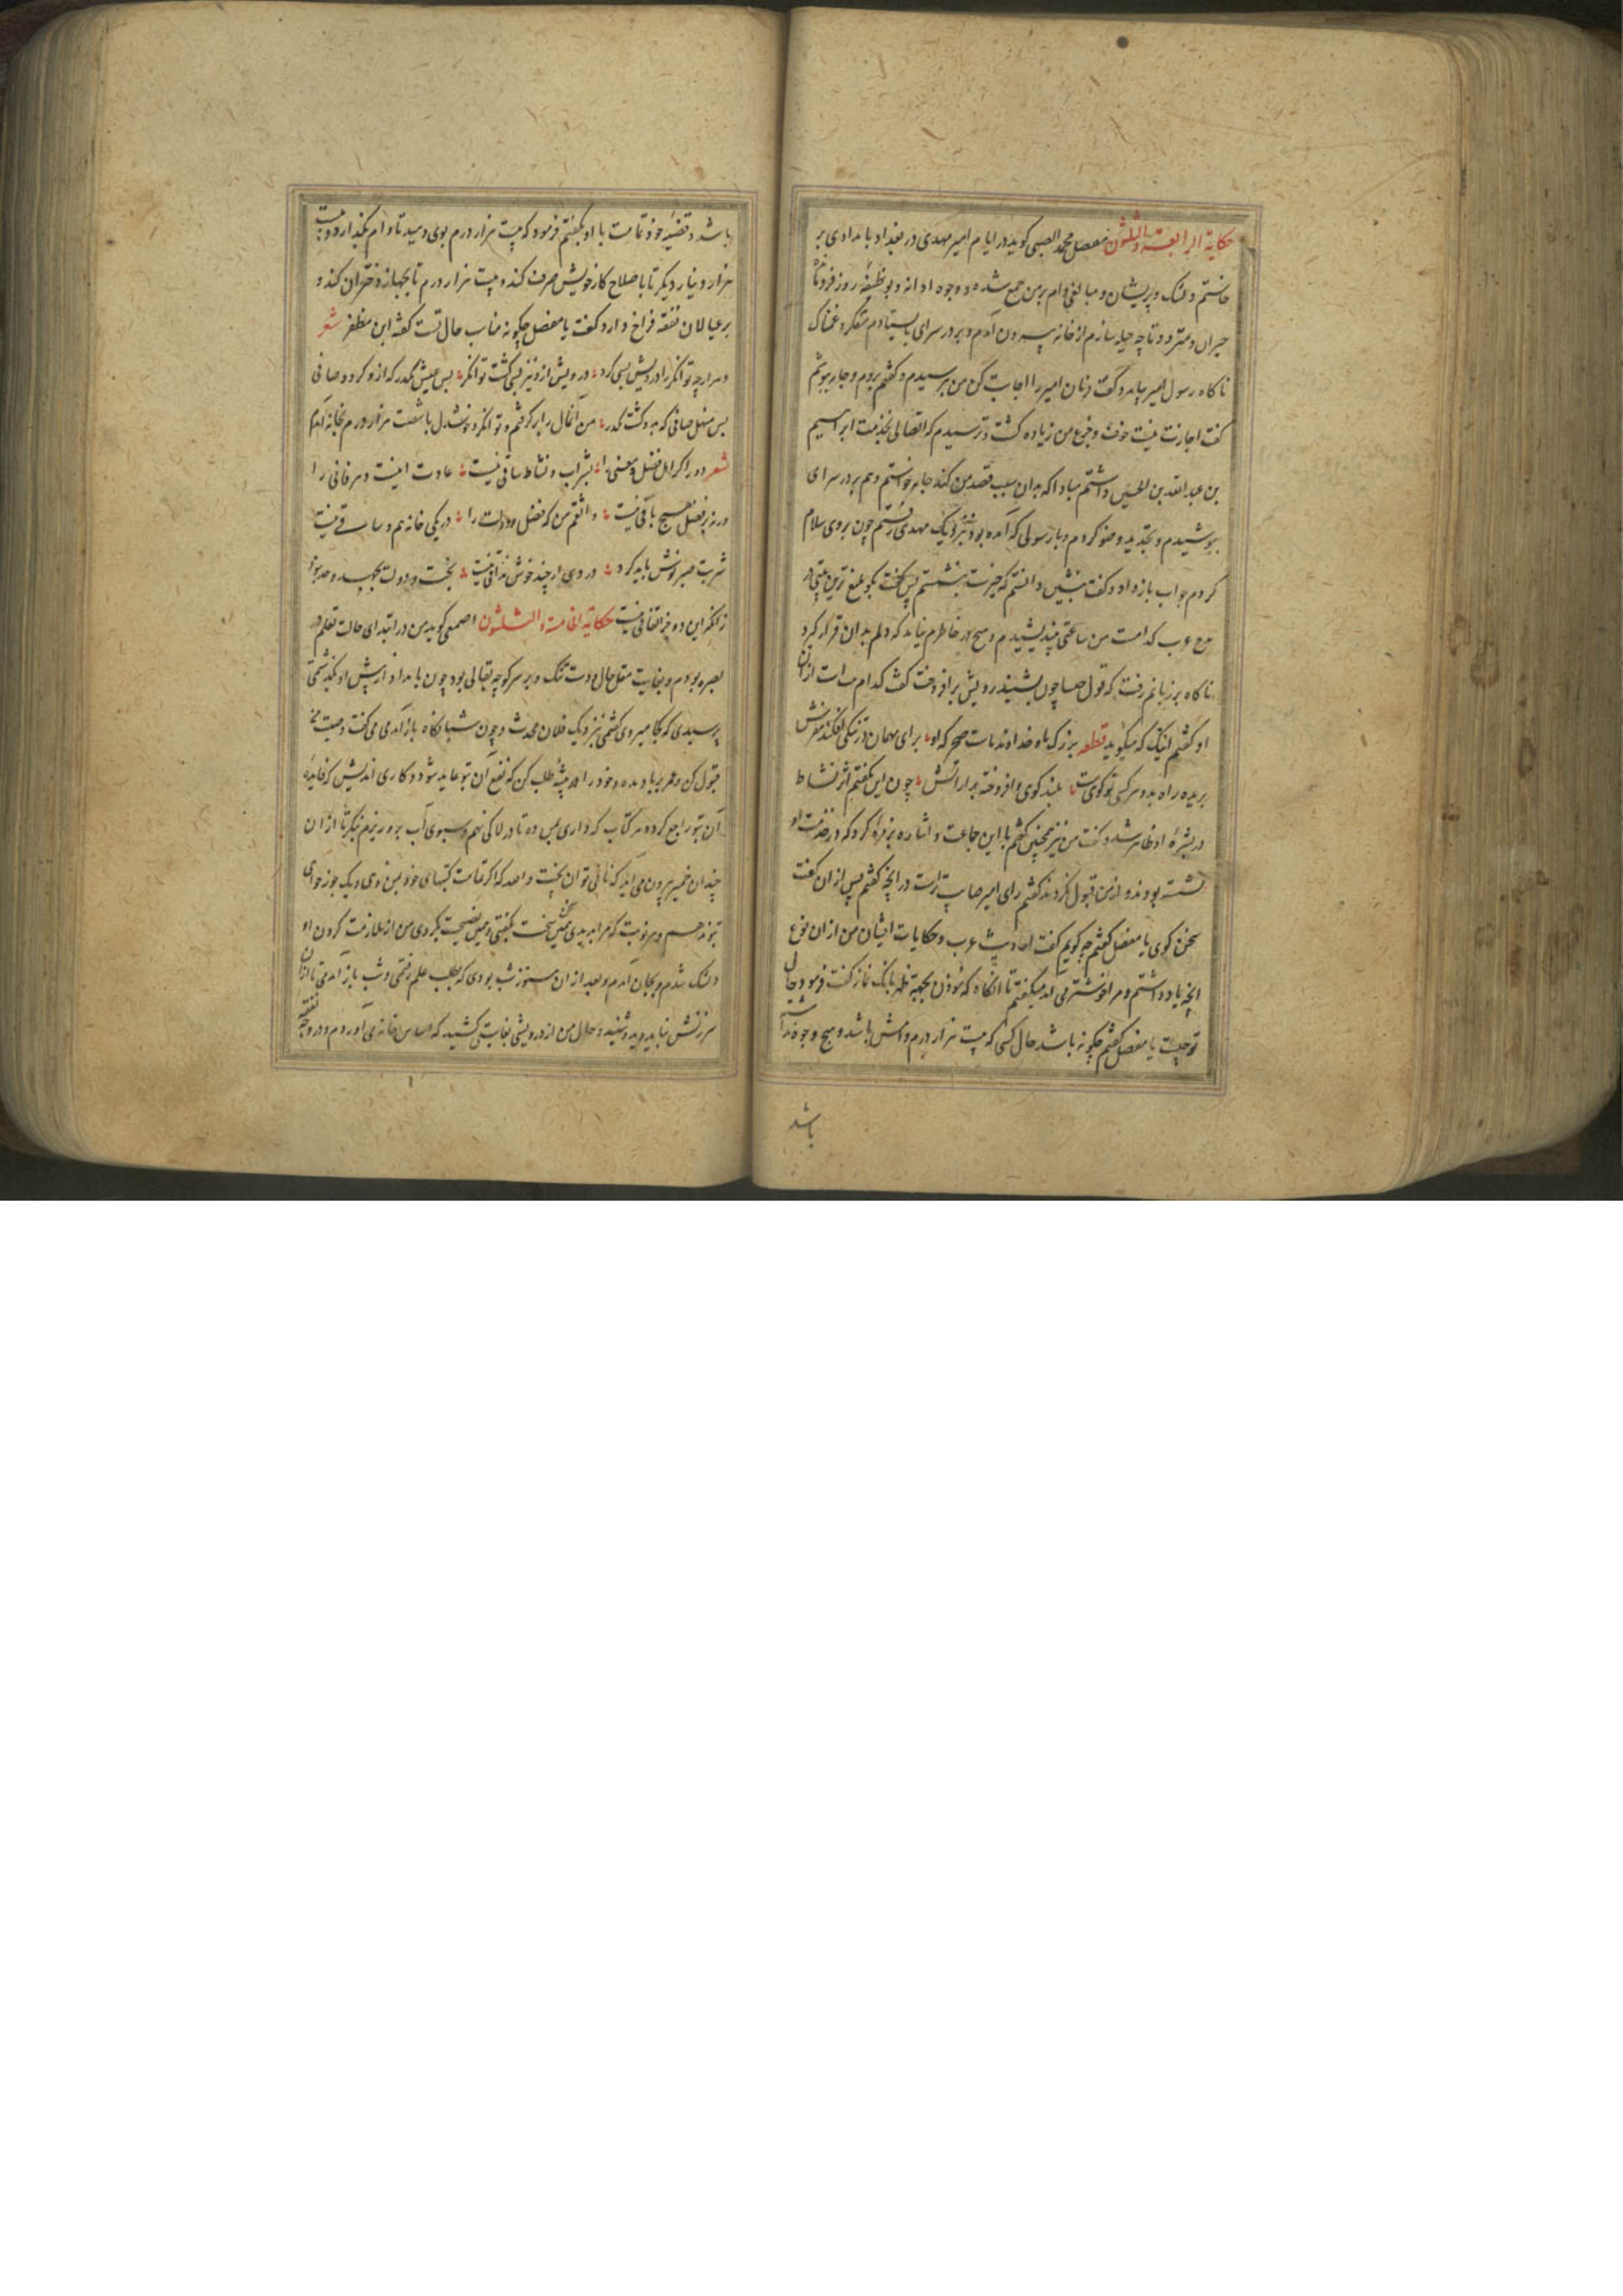 حکایة الرابعة و الثلثون مفضل محمد الضبی کوید در ایام امیر مهدی در بغداد بامدادی بر
خاستم دلتنک و پریشان و مبالغی وام بر من جمع شده و وجوه ادا نه و بوظیفه روز فرو
حیران و متردد تا چه حیله سازم از خانه بیرون آمدم و بر در سرای بایستادم متفکر و غمناک
ناکاه رسول امیر بیامد و کفت فرمان امیر را اجابت کن من بترسیدم و کفتم بروم و جامه بپوشم
کفت اجازت نیست خوف و جزع من زیاده کشت و ترسیدم که اتصالی بخدمت ابراهیم
بن عبد الله بن الحسین داشتم مبادا که بدان سبب قصد من کند جامه خواستم و هم بر در سرای
بپوشیدم و تجدید وضو کردم و با رسولی که آمده بود بنزدیک مهدی رفتم چون بروی سلام
کردم جواب باز داد و کفت بنشین دانستم که خیرست بنشستم پس کفت بکو بلیغ ترین بیتی در
مدح عرب کدامست من ساعتی بیندیشیدم و هیچ در خاطرم نیامد که دلم بدان قرار کیرد
ناکاه بر زبانم رفت که قول خنسا چون بشنید رویش برافروخت کفت کدام بیت است از ان
او کفتم اینک که میکوید قطعه بزرک باه خداوند ماست صخر که او برای مهمان در تنکی افکند مفرش
بریده راه بدو هر کسی توکوی بلند کوی و افروخته بدار آتش چون این بکفتم اثر نشاط
در بشره او ظاهر شد و کفت من نیز همچنین کفتم با این جماعت و اشاره بزمره کرد که در خدمت او
نشسته بودند و از من قبول نکردند کفتم رای امیر صایب تراست در انچه کفتم پس از ان کفت
سخن کوی یا مفضل کفتم چه کویم کفت احادیث عرب و حکایات ایشان من از ان نوع
انچه یاد داشتم و مرا خوشتر می آمد میکفتم تا انکاه که مؤذن بجهة ظهر بانک نماز کفت فرمود حال
تو چیست یا مفضل کفتم چکونه باشد حال کسی که بیست هزار درم وامش باشد و هیچ وجوه
باشد
باشد و قضیه خود تمامت با او بکفتم فرمود که بیست هزار درم بوی دهید تا وام بکذارد و بیست
هزار دینار دیکر تا با صلاح کار خویش صرف کند و بیست هزار درم تا بجهاز دختران کند و
بر عیالان نفقه فراخ دارد کفت یا مفضل چکونه مناسب حال تست کفته ابن مظفر شعر
دهر ارچه توانکر را درویش بسی کرد درویش ازو نیز بسی کشت توانکر بس عیش مکدر که ازو کردد صافی
بس منهل صافی که بدو کشت مکدر من آنمال را بر کرفتم و توانکر و خوشدل با شصت هزار درم بخانه آمدم
شعر دور اکر اهل فضل و معنی را بشراب و نشاط ساقی نیست عادت اینست دهر فانی را
ورنه بر فضل هیچ باقی نیست واثقم من که فضل و دولت را در یکی خانه هم وساقی نیست
شربت صبر نوش باید کرد در دمی ار چند خوش مذاقی نیست بخت و دولت بجهد
زانکه این دو جز اتفاقی نیست حکایة الخامسة و الثلثون اصمعی کوید من در ابتدای حالت تعلم در
بصره بودم و بغایت مقل حال و دست تنک و بر سر کوچه بقالی بود چون بامداد از پیش او بکذشتمی
پرسیدی که کجا میروی کفتمی بنزدیک فلان محدث و چون شبانکاه باز آمدمی می کفت وصیت من
قبول کن و عمر بر باد مده و خود را حرفه پیشه طلب کن که نفع آن بتو عاید شود و کاری اندیش که فایده
آن بتو راجع کردد هر کتاب که داری بمن ده تا در لاکی نهم و سبوی آب برو ریزم بنکر تا از ان
چندان خمیر بیرون می آید که نانی توان پخت والله که اکر تمامت کتبهای خود بمن دهی و یک جوز خواهی
بتو ندهم و هر نوبت که مرا بدیدی همین سخن سخت بکفتی و همین نصیحت بکردی من از ملازمت کردن او
دلتنک شدم و بجان آمدم و بعد از ان هنوز شب بودی که بطلب علم رفتمی و شب باز آمدمی تا از ان
سرزنش نباید دید و شنید و حال من از درویشی بغایتی کشید که اساس خانه می آوردم و در وجه نفقه